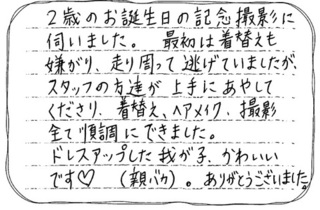 2歳のお誕生日の記念撮影に
伺いました。 最初は着替えも
嫌がり、走り周って逃げていましたが、
スタッフの友達が上手にあやして
くださり、着替え、ヘアメイク、撮影
全て順調にできました。
ドレスアップした我が子、かわいい
です♡ (親バカ)。ありがとうございました。